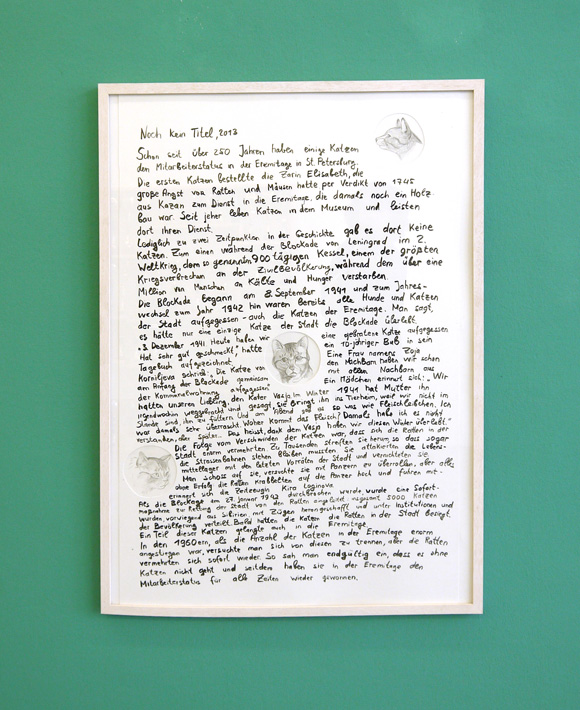 Noch kein Titel, 2013
Schon seit über 250 Jahren haben einige Katzen
den Mitarbeiterstatus in der Eremitage in St. Petersburg.
Die ersten Katzen bestellte die Zarin Elisabeth, die
große Angst vor Ratten und Mäusen hatte per Verdikt von 1745
aus Kazan zum Dienst in die Eremitage, die damals noch ein Holz
bau war. Seit jeher leben Katzen in dem Museum und leisten
dort ihren Dienst.
Lediglich zu zwei Zeitpunkten in der Geschichte gab es dort keine
Katzen. Zum einen während der Blockade von Leningrad im 2.
Weltkrieg, dem so genannten 900 tägigen Kessel, einem der größten
Kriegsverbrechen an der Zivilbevölkerung, während dem über eine
Million von Menschen an Kälte und Hunger verstarben.
Die Blockade begann am 8. September 1941 und zum Jahres-
wechsel zum Jahr 1942 hin waren bereits alle Hunde und Katzen
der Stadt aufgegessen - auch die Katzen der Eremitage. Man sagt,
es hätte nur eine einzige Katze der Stadt die Blockade überlebt.
"3. Dezember 1941 Heute haben wir eine gebratene Katze aufgegessen
Hat sehr gut geschmeckt", hatte ein 10-jähriger Bub in sein
Tagebuch aufgezeichnet. Eine Frau namens Zoja
Korniljeva schrieb: Die Katze von den Nachbarn haben wir schon
am Anfang der Blockade gemeinsam mit allen Nachbarn aus
der Kommunalwohnung aufgegessen" Ein Mädchen erinnert sich: "Wir
hatten unseren Liebling, den Kater Vasja. Im Winter 1941 hat Mutter ihn
irgendwohin weggebracht und gesagt, sie bringt ihn ins Tierheim, weil wir nicht im
Stande sind, ihn zu füttern. Und am Abend gab es so was wie Fleischleibchen. Ich
war damals sehr überrascht. Woher kommt das Fleisch? Damals habe ich es nicht
verstanden, aber später... Das heisst, dank dem Vasja haben wir diesen Winter überlebt."
Die Folge vom Verschwinden der Katzen war, dass sich die Ratten in der
Stadt enorm vermehrten. Zu Tausenden streiften sie herum, so dass sogar
die Strassenbahnen stehen bleiben mussten. Sie attakierten die Lebens-
mittellager mit den letzten Vorräten der Stadt und vernichteten sie.
Man schoss auf sie, versuchte sie mit Panzern zu überrollen, aber alles
ohne Erfolg. Die Ratten krabbelten auf die Panzer hoch und fuhren mit-
erinnert sich die Zeitzeugin Kira Loginova.
Als die Blockade am 27. Januar 1943 durchbrochen wurde, wurde eine Sofort-
maßnahme zur Rettung der Stadt von den Ratten eingeleitet: insgesamt 5000 Katzen
wurden, vorwiegend aus Sibirien, mit Zügen herangeschafft und unter Institutionen und
der Bevölkerung verteilt. Bald hatten die Katzen die Ratten in der Stadt besiegt.
Ein Teil dieser Katzen gelangte auch in die Eremitage.
In den 1960ern, als die Anzahl der Katzen in der Eremitage enorm
angestiegen war, versuchte man sich von diesen zu trennen, aber die Ratten
vermehrten sich sofort wieder. So sah man endgültig ein, dass es ohne
Katzen nicht geht und seitdem haben sie in der Eremitage den
Mitarbeiterstatus für alle Zeiten wieder gewonnen.